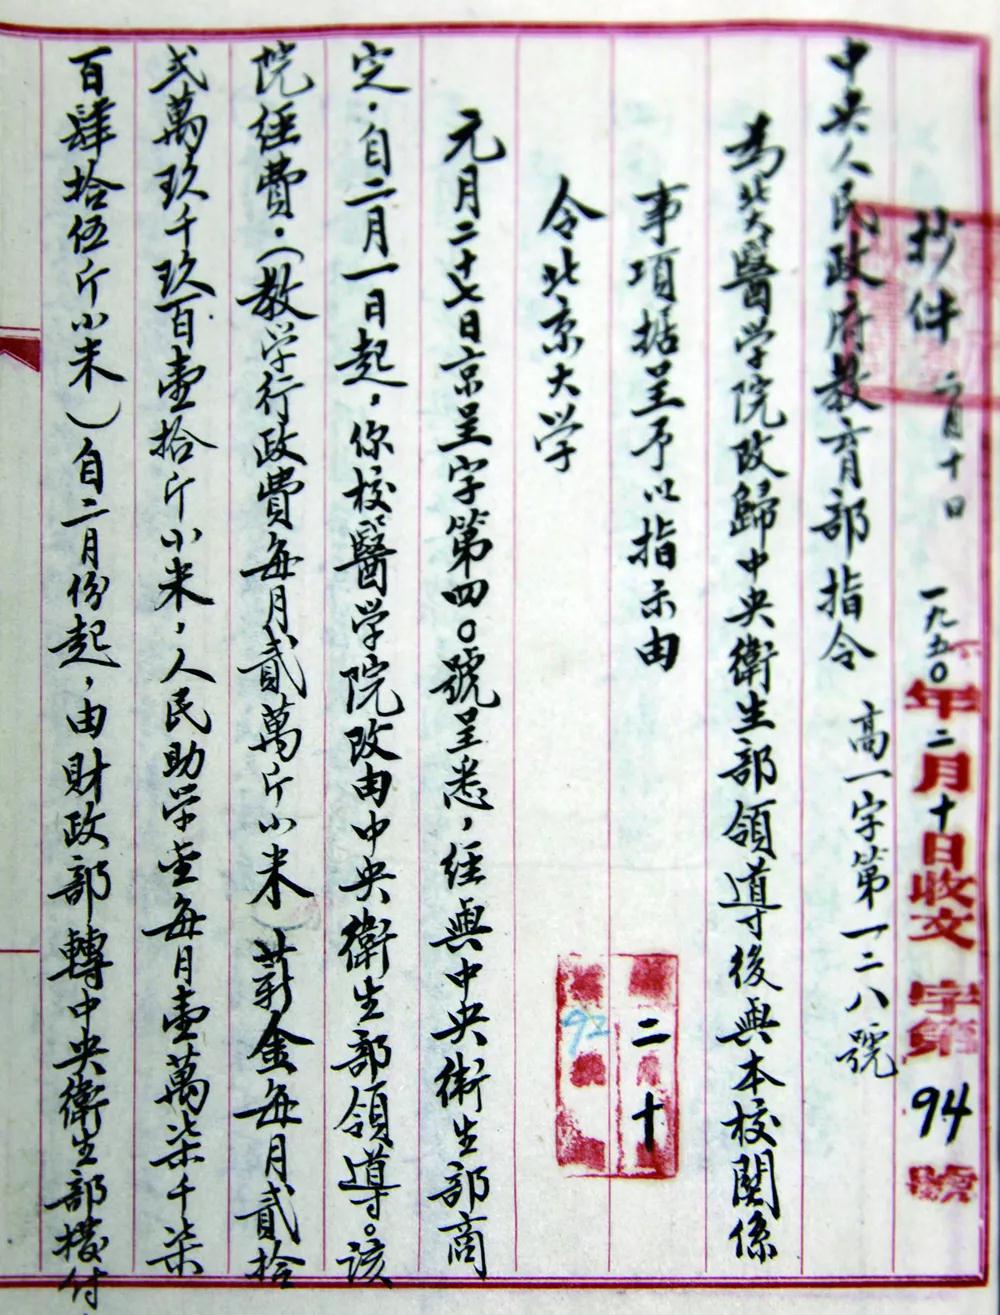 抄件 二月十日 一九五〇年二月十日收文 字第94號
中央人民政府教育部指令 高一字第一二八號
為北大醫学院改歸中央衛生部領導後與本校関係
事項据呈予以指示由
二 十
令北京大学
92
元月二十七日京呈字第四〇號呈悉,経與中央衛生部商
定,自二月一日起,你校醫学院改由中央衛生部領導。该
院経費,(教学行政費每月貳萬斤小米)薪金每月貳拾
弍萬玖千玖百壹拾斤小米,人民助学金每月壹萬柒千柒
百肆拾伍斤小米)自二月份起,由財政部轉中央衛生部撥付